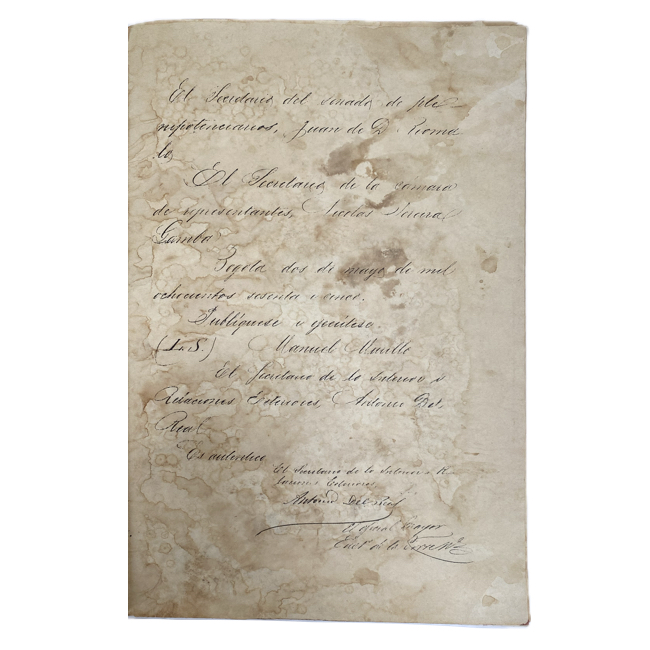 El Secretario del senado de ple-
nipotenciarios, Juan de D. Rioma
lo,
El Secretario de la camara
de representantes, Nicolas Pereira
Gamba
Bogotá dos de mayo de mil
ochocientos sesenta i cinco.
Publíquese i ejecútese.
(L. S.) Manuel Murillo
El Secretario de lo Interior i
Relaciones Esteriores, Antonio del
Real
Es auténtico
El Secretario de lo Interior i R
laciones Esteriores
Antonio del Real
El oficial mayor
de la Torre N.